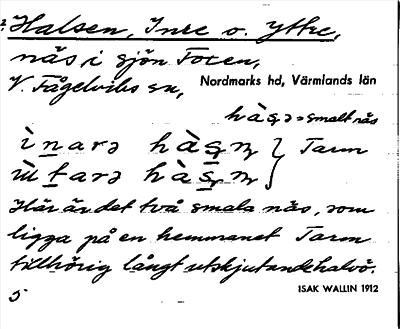 2. Halsen, Inre o. Yttre,
näs i sjön Foxen,
V. Fågelviks sn, Nordmarks hd, Värmlands län
hàsə = smalt näs
ìnarə hàsn̥
ùtarə hàsn̥ } Tarm
Här är det två smala näs, som
ligga på en hemmanet Tarm
tillhörig långt utskjutande halvö.
5 ISAK WALLIN 1912